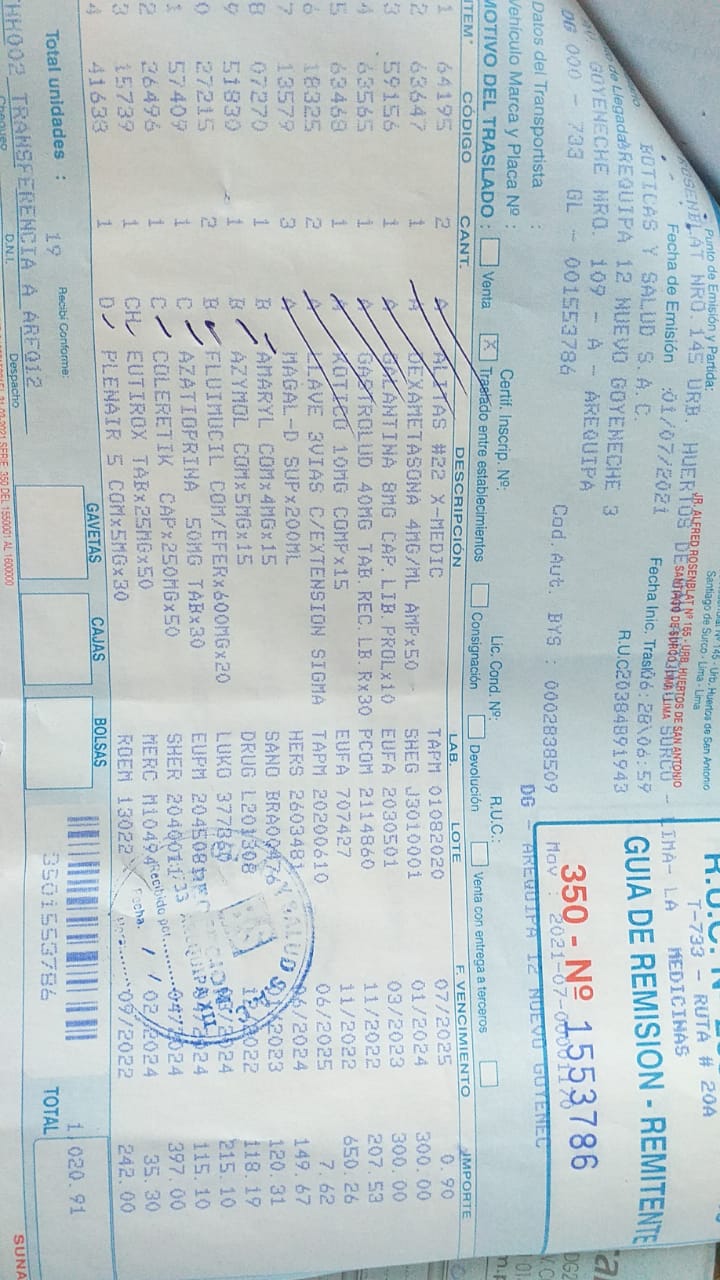 Punto de Emisión y Partida:
JR. ALFRED ROSENBLAT Nº 165 - URB. HUERTOS DE SAN ANTONIO
SANTIAGO DE SURCO - LIMA - LIMA
Urb. Huertos de San Antonio
Santiago de Surco - Lima - Lima
NRO 145 URB. HUERTOS DE
SURCO - LIMA- LA
T-733 - RUTA # 20A
MEDICINAS
GUIA DE REMISION - REMITENTE
350 - Nº 1553786
Fecha de Emisión :01/07/2021
Fecha Inic. Trasl. 06:28\06:59
BOTICAS Y SALUD S.A.C.
R.U.C 20384891943
de Llegada: AREQUIPA 12 NUEVO GOYENECHE 3
GOYENECHE NRO 109 - A - AREQUIPA
DG 000 - 733 GL - 001553786
Cod.Aut. BYS : 0002838509
DG - AREQUIPA 12 NUEVO GOYENEC
Datos del Transportista
Vehículo Marca y Placa Nº :
Certif. Inscrip. Nº:
Lic. Cond. Nº:
R.U.C.:
MOTIVO DEL TRASLADO : Venta X Traslado entre establecimientos Consignación Devolución Venta con entrega a terceros
ITEM CÓDIGO CANT. DESCRIPCIÓN LAB. LOTE F. VENCIMIENTO IMPORTE
1 64195 2 A ALITAS #22 X-MEDIC TAPM 01082020 07/2025 0.90
2 63647 1 A DEXAMETASONA 4MG/ML AMPx50 SHEG J3010001 01/2024 300.00
3 59156 1 A GALANTINA 8MG CAP.LIB.PROLx10 EUFA 2030501 03/2023 300.00
4 63565 1 A GASTROLUD 40MG TAB.REC.LB.Rx30 PCOM 2114860 11/2022 207.53
5 63468 1 A KOTICO 10MG COMPx15 EUFA 707427 11/2022 650.26
6 18325 2 A LLAVE 3VIAS C/EXTENSION SIGMA TAPM 20200610 06/2025 7.62
7 13579 3 A MAGAL-D SUPx200ML HERS 2603481 06/2024 149.67
8 07270 1 B AMARYL COMx4MGx15 SANO BRA00476 120.31
9 51830 1 B AZYMOL COMx5MGx15 DRUG L201308 118.19
0 27215 2 B FLUIMUCIL COM/EFERx600MGx20 LUKO 215.10
1 57409 1 C AZATIOPRINA 50MG TABx30 EUPM 115.10
2 26496 1 C COLERETIK CAPx250MGx50 SHER 397.00
3 15739 1 CH EUTIROX TABx25MGx50 MERC M10494 02/2024 35.30
4 41638 1 D PLENAIR 5 COMx5MGx30 ROEM 13022 09/2022 242.00
Recibido por
Fecha
Total unidades : 19
Recibí Conforme:
GAVETAS
CAJAS
BOLSAS
3501553786
TOTAL
1,020.91
TRANSFERENCIA A AREQ12
Chequeo
D.N.I.
Despacho
SUNA